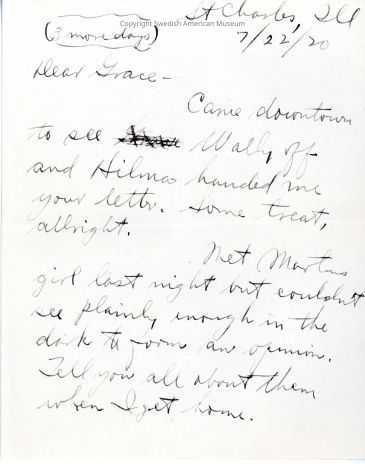 Copyright Swedish American Museum
St Charles, Ill
(3 more days)
7/22/20
Dear Grace-
Came downtown
to see Wally off
and Hilma handed me
your letter. Some treat,
allright.
Met Martins
girl last night but couldn't
see plainly enough in the
dark to form an opinion.
Tell you all about them
when I get home.